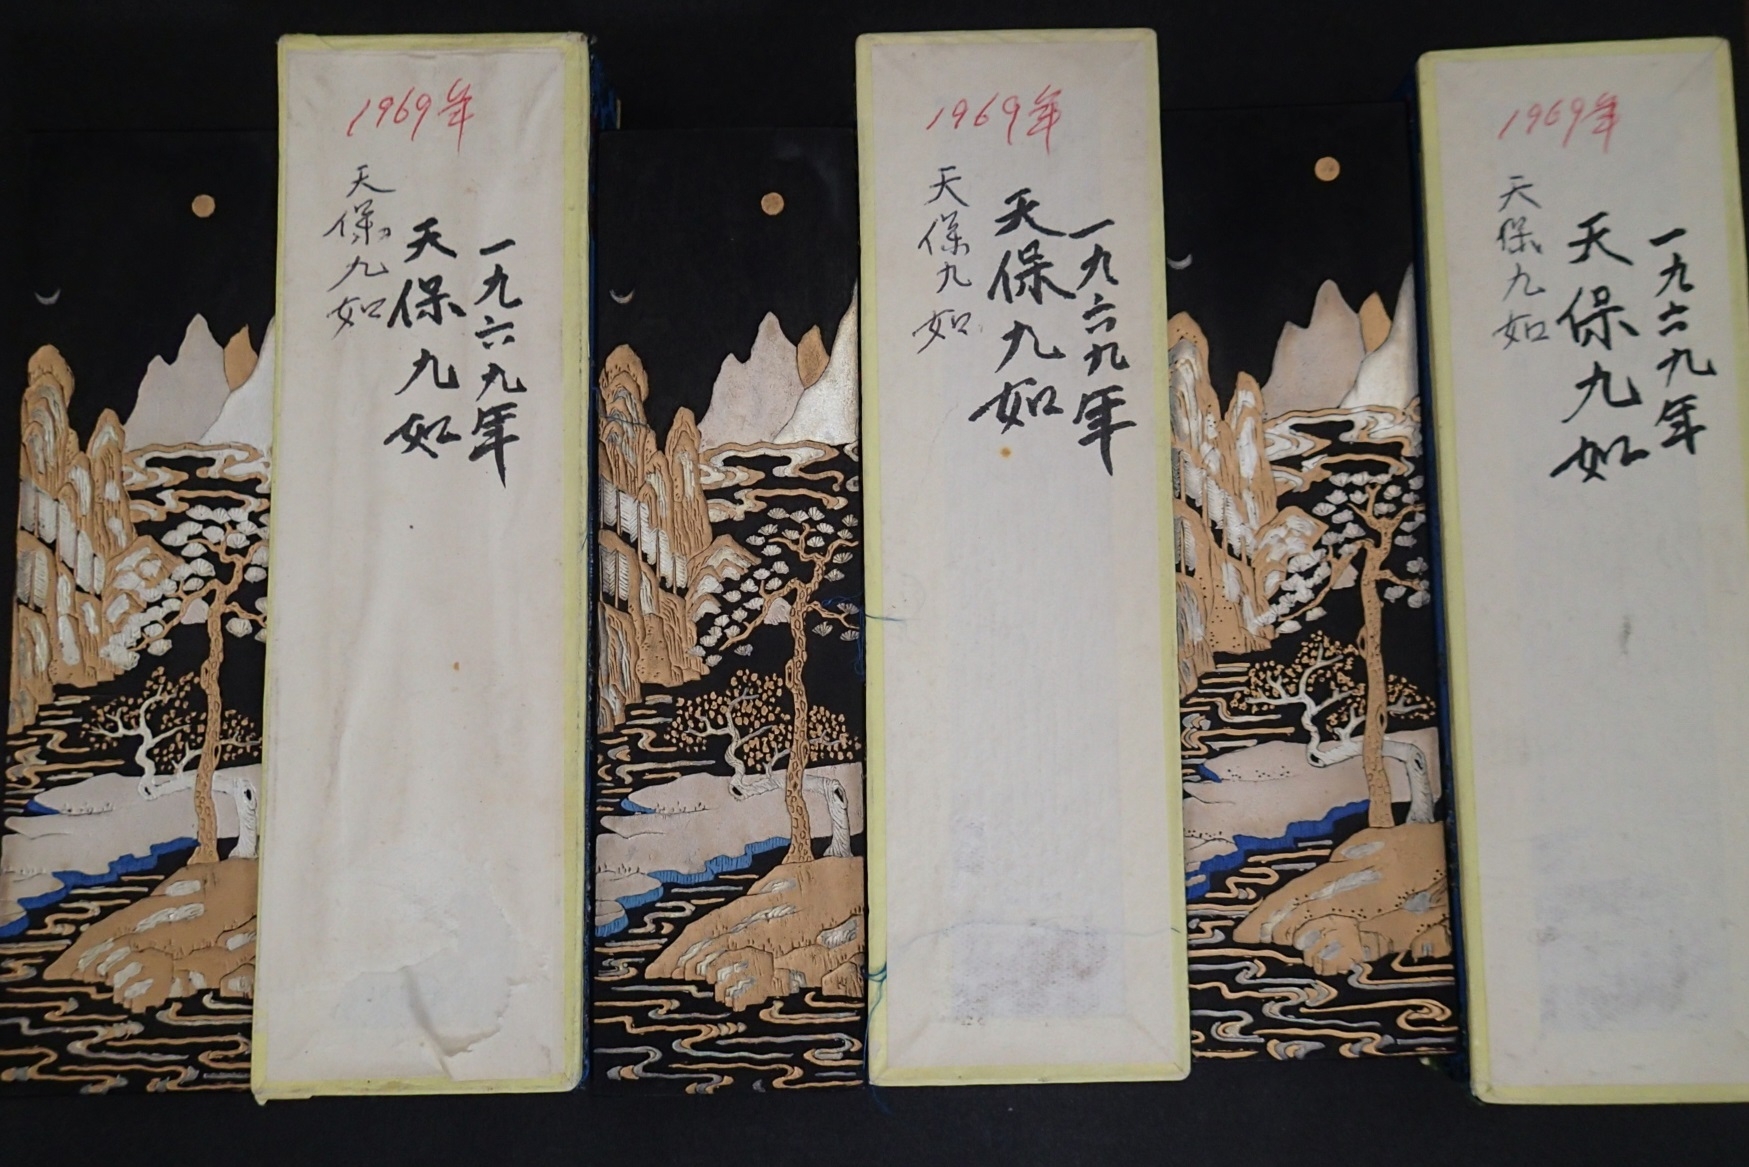 1969年
一九六九年
天保九如
天保九如
1969年
一九六九年
天保九如
天保九如
1969年
一九六九年
天保九如
天保九如